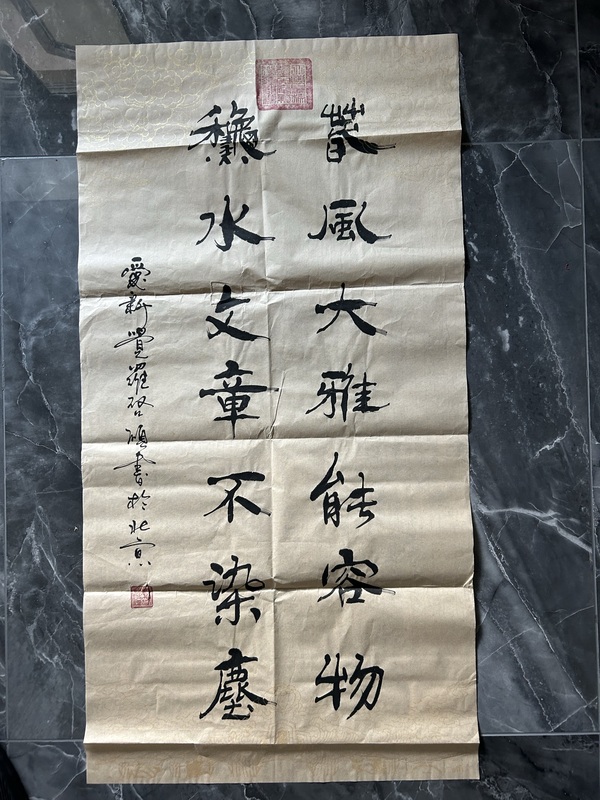 萅風大雅能容物
龝水文章不染塵
愛新覺羅啓碩書於北京